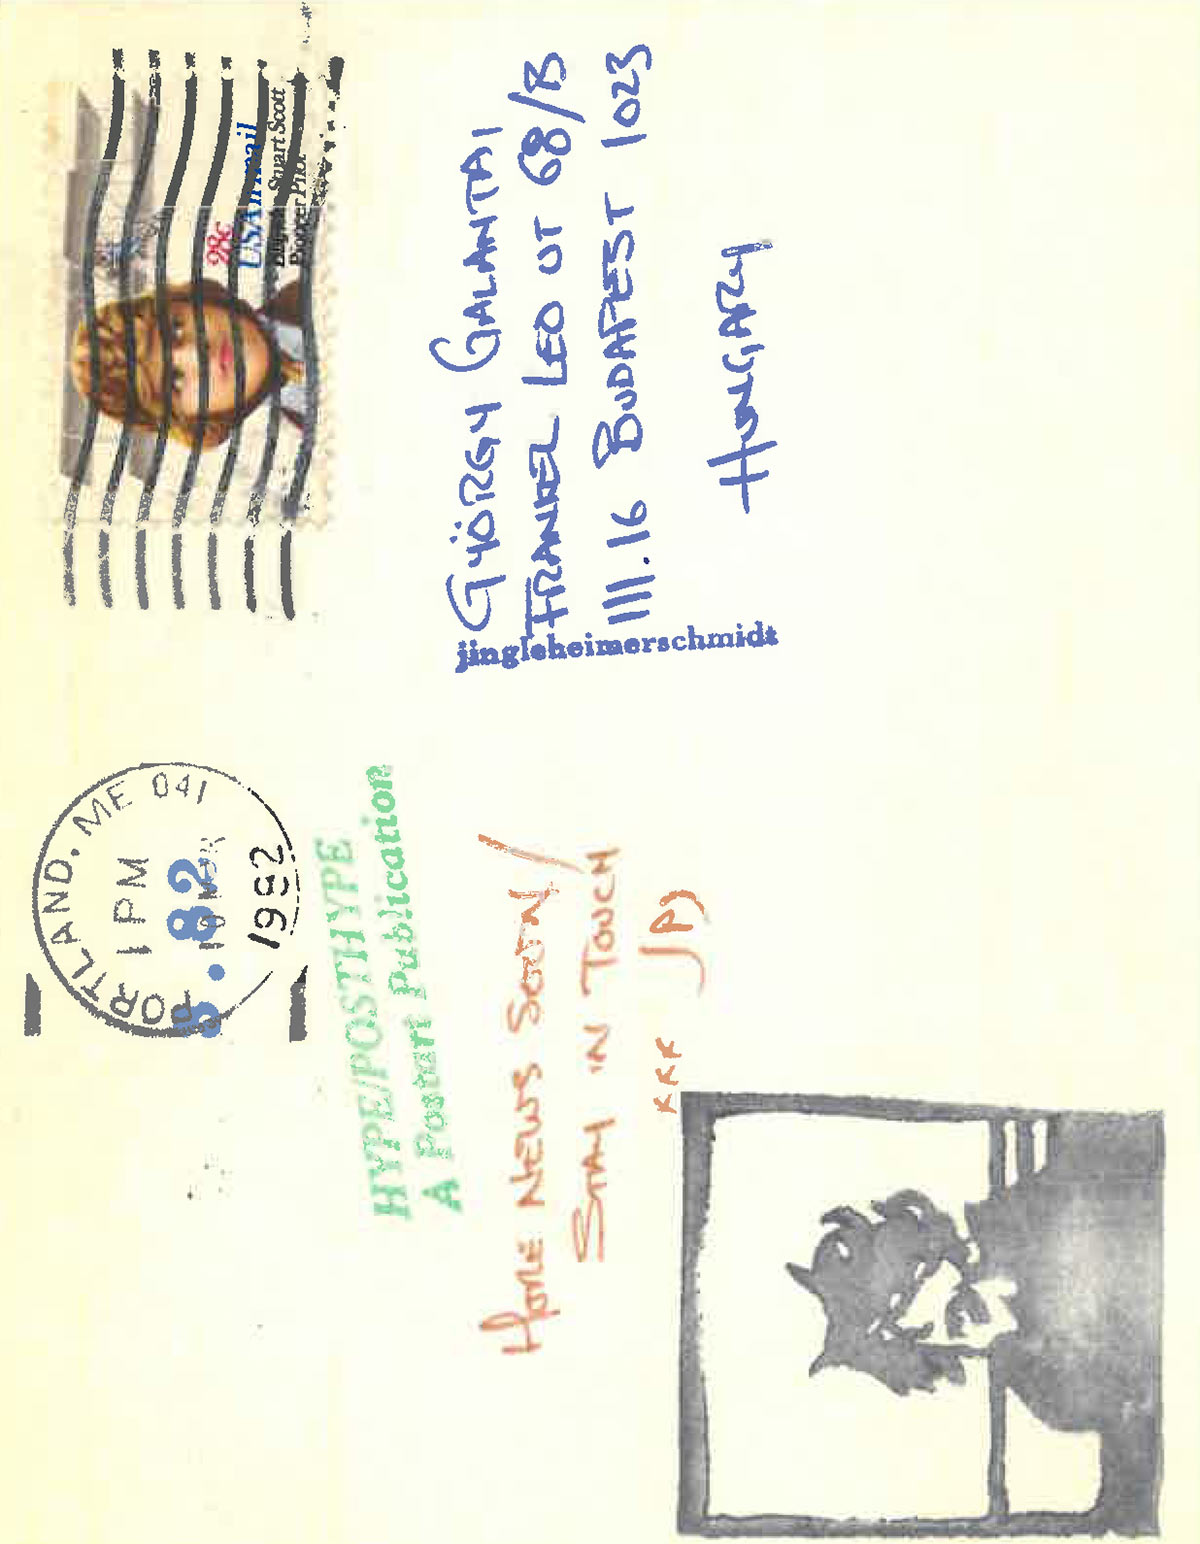 28c
USAirmail
Blanche Stuart Scott
Pioneer Pilot
PORTLAND, ME 041
1 PM
10 MAR
1982
GYÖRGY GALANTAI
FRANKEL LEO UT 68/B
III.16 BUDAPEST 1023
HUNGARY
jingleheimerschmidt
HYPE/POSTHYPE
A Postart Publication
MORE NEWS SOON/
STAY IN TOUCH